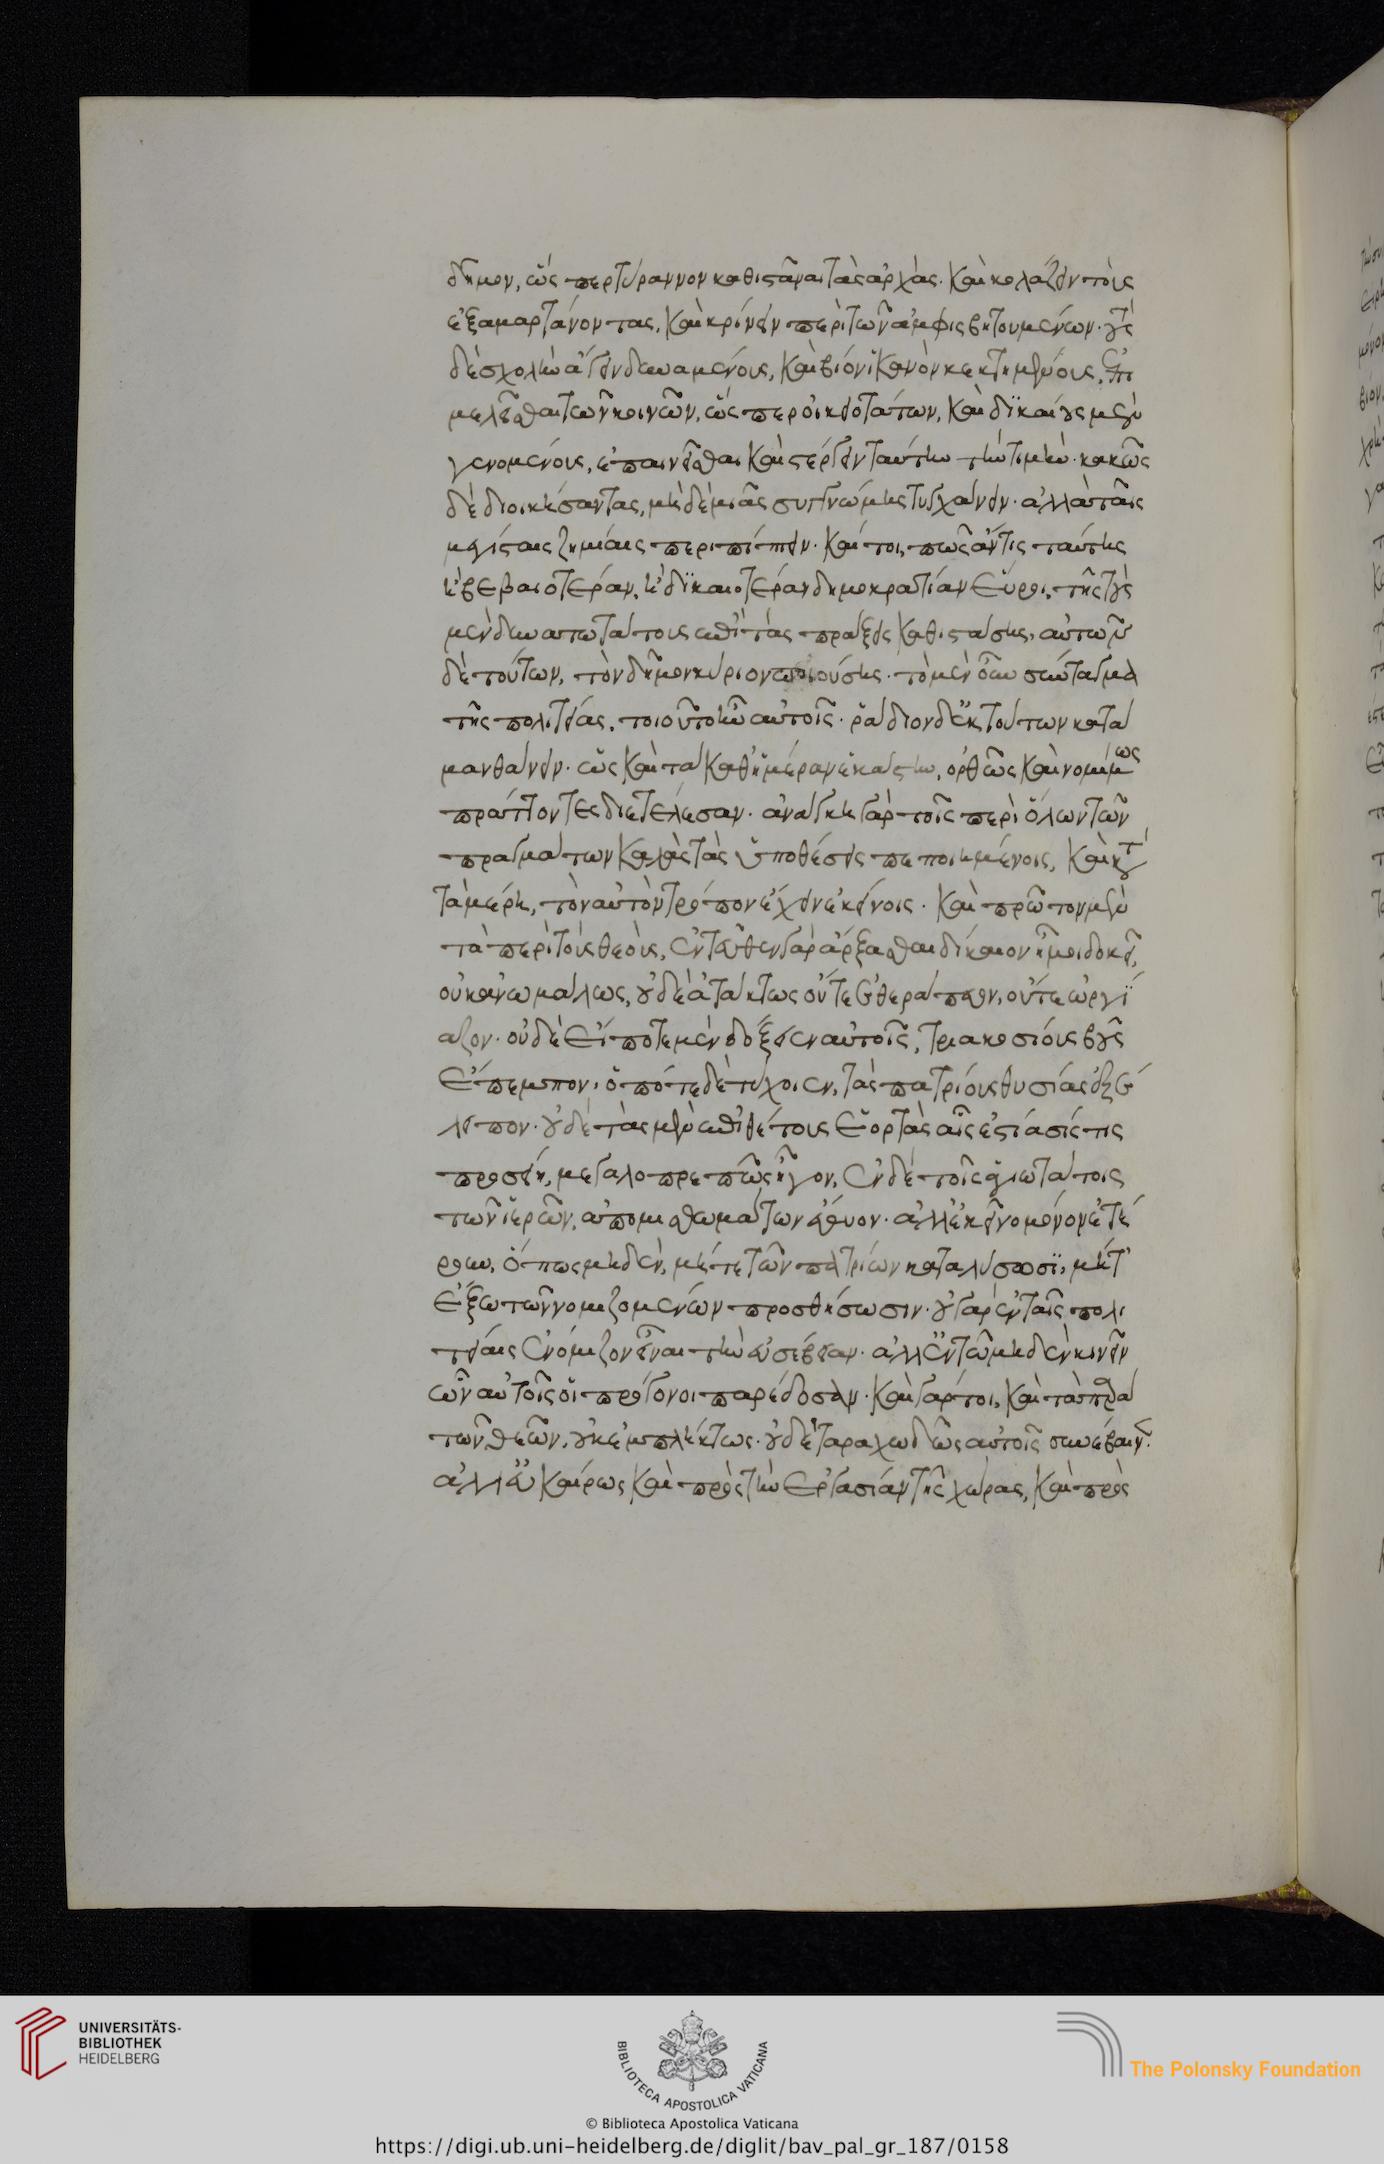 δῆμον, ὥσπερ τύραννον καθιστᾶναι τὰς ἀρχάς. καὶ κολάζειν τοὺς
ἐξαμαρτάνοντας, καὶ κρίνειν περὶ τῶν ἀμφισβητουμένων. τοὺς
δὲ σχολὴν ἄγειν δυναμένους, καὶ βίον ἱκανὸν κεκτημένους, ἐπι
μελεῖσθαι τῶν κοινῶν, ὥσπερ οἰκειοτάτων, καὶ δικαίους μὲν
γενομένους, ἐπαινεῖσθαι καὶ στέργειν ταύτην τὴν τιμήν. κακῶς
δὲ διοικήσαντας, μηδὲ μιᾶς συγγνώμης τυγχάνειν. ἀλλὰ ταῖς
μεγίσταις ζημίαις περιπίπτειν. καί τοι, πῶς ἄν τις ταύτης
ἢ βεβαιοτέραν, ἢ δικαιοτέραν δημοκρατίαν εὕροι, τῆς τοὺς
μὲν δυνατωτάτους ἐπὶ τὰς πράξεις καθιστάσης, αὐτῶν
δὲ τούτων, τὸν δῆμον κύριον ποιούσης. τὸ μὲν οὖν σύνταγμα
τῆς πολιτείας, τοιοῦτο ἦν αὐτοῖς. ῥάδιον δ' ἐκ τούτων κατα
μανθάνειν. ὡς καὶ τὰ καθ' ἡμέραν ἑκάστην, ὀρθῶς καὶ νομίμως
πράττοντες διετέλεσαν. ἀνάγκη γὰρ τοῖς περὶ ὅλων τῶν
πραγμάτων καλὰς τὰς ὑποθέσεις πεποιημένοις, καὶ κατὰ
τὰ μέρη, τὸν αὐτὸν τρόπον ἔχειν ἐκείνοις. καὶ πρῶτον μὲν
τὰ περὶ τοὺς θεοὺς, ἐντεῦθεν γὰρ ἄρξασθαι δίκαιον ἡμῖν δοκεῖ,
οὐκ ἀνωμάλως, οὐδὲ ἀτάκτως οὔτε ἐθεράπευον, οὔτε ὠργί
αζον. οὐδὲ εἴ ποτε μὲν δόξειεν αὐτοῖς, τριακοσίους βοῦς
ἔπεμπον, ὁπότε δὲ τύχοιεν, τὰς πατρίους θυσίας ἐξέ
λιπον. οὐδὲ τὰς μὲν ἐπιθέτους ἑορτὰς αἷς ἑστίασίς τις
προσείη, μεγαλοπρεπῶς ἦγον, ἐν δὲ τοῖς ἁγιωτάτοις
τῶν ἱερῶν, ἀπομισθωμάτων ἔθυον. ἀλλ' ἐκεῖνο μόνον ἐτή
ρουν, ὅπως μηδὲν, μήτε τῶν πατρίων καταλύσωσι, μήτ'
ἔξω τῶν νομιζομένων προσθήσωσιν. οὐ γὰρ ἐν ταῖς πολι
τείαις ἐνόμιζον εἶναι τὴν εὐσέβειαν. ἀλλ' ἐν τῷ μηδὲν κινεῖν
ὧν αὐτοῖς οἱ πρόγονοι παρέδοσαν. καὶ γάρ τοι, καὶ τὰ παρὰ
τῶν θεῶν, οὐκ ἐμπλήκτως. οὐδὲ ταραχωδῶς αὐτοῖς συνέβαινεν.
ἀλλ' εὐκαίρως καὶ πρὸς τὴν ἐργασίαν τῆς χώρας, καὶ πρὸς
UNIVERSITÄTS-
BIBLIOTHEK
HEIDELBERG
BIBLIOTECA APOSTOLICA VATICANA
The Polonsky Foundation
© Biblioteca Apostolica Vaticana
https://digi.ub.uni-heidelberg.de/diglit/bav_pal_gr_187/0158